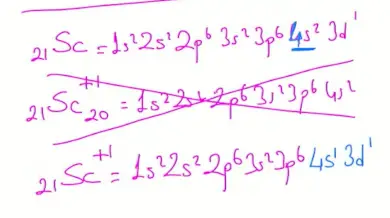 ₂₁Sc = 1s²2s²2p⁶3s²3p⁶4s²3d¹
₂₁Sc⁺¹₂₀ = 1s²2s²2p⁶3s²3p⁶4s²
₂₁Sc⁺¹ = 1s²2s²2p⁶3s²3p⁶4s¹3d¹